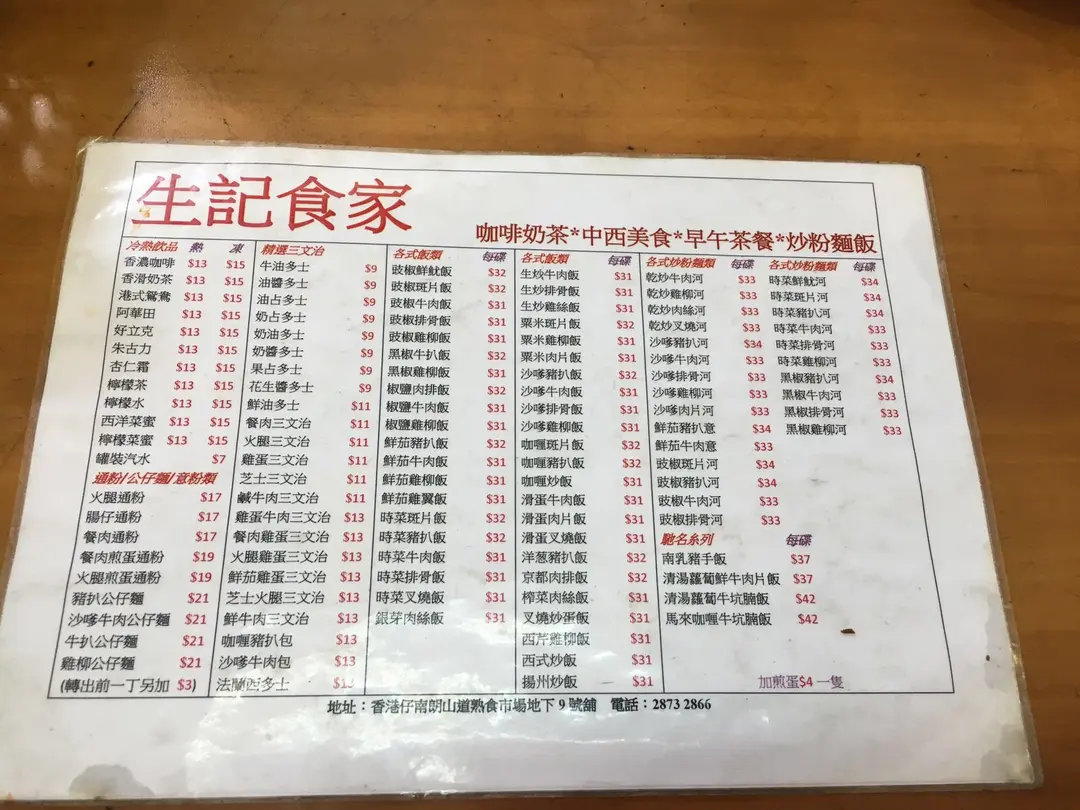 生記食家
咖啡奶茶*中西美食*早午茶餐*炒粉麵飯
冷熱飲品 熱 凍
香濃咖啡 $13 $15
香滑奶茶 $13 $15
港式鴛鴦 $13 $15
阿華田 $13 $15
好立克 $13 $15
朱古力 $13 $15
杏仁霜 $13 $15
檸檬茶 $13 $15
檸檬水 $13 $15
西洋菜蜜 $13 $15
檸檬菜蜜 $13 $15
罐裝汽水 $7
通粉/公仔麵/意粉類
火腿通粉 $17
腸仔通粉 $17
餐肉通粉 $17
餐肉煎蛋通粉 $19
火腿煎蛋通粉 $19
豬扒公仔麵 $21
沙嗲牛肉公仔麵 $21
牛扒公仔麵 $21
雞柳公仔麵 $21
(轉出前一丁另加 $3)
精選三文治
牛油多士 $9
油醬多士 $9
油占多士 $9
奶占多士 $9
奶油多士 $9
奶醬多士 $9
果占多士 $9
花生醬多士 $9
鮮油多士 $11
餐肉三文治 $11
火腿三文治 $11
雞蛋三文治 $11
芝士三文治 $11
鹹牛肉三文治 $11
雞蛋牛肉三文治 $13
餐肉雞蛋三文治 $13
火腿雞蛋三文治 $13
鮮茄雞蛋三文治 $13
芝士火腿三文治 $13
鮮牛肉三文治 $13
咖喱豬扒包 $13
沙嗲牛肉包 $13
法蘭西多士 $13
各式飯類 每碟
豉椒鮮魷飯 $32
豉椒斑片飯 $32
豉椒牛肉飯 $31
豉椒排骨飯 $31
豉椒雞柳飯 $31
黑椒牛扒飯 $32
黑椒雞柳飯 $31
椒鹽肉排飯 $32
椒鹽牛肉飯 $31
椒鹽雞柳飯 $31
鮮茄豬扒飯 $32
鮮茄牛肉飯 $31
鮮茄雞柳飯 $31
鮮茄雞翼飯 $31
時菜斑片飯 $32
時菜豬扒飯 $32
時菜牛肉飯 $31
時菜排骨飯 $31
時菜叉燒飯 $31
銀芽肉絲飯 $31
各式飯類 每碟
生炒牛肉飯 $31
生炒排骨飯 $31
生炒雞絲飯 $31
粟米斑片飯 $32
粟米雞柳飯 $31
粟米肉片飯 $31
沙嗲豬扒飯 $32
沙嗲牛肉飯 $31
沙嗲排骨飯 $31
沙嗲雞柳飯 $31
咖喱斑片飯 $32
咖喱豬扒飯 $32
咖喱炒飯 $31
滑蛋牛肉飯 $31
滑蛋肉片飯 $31
滑蛋叉燒飯 $31
洋葱豬扒飯 $32
京都肉排飯 $32
榨菜肉絲飯 $31
叉燒炒蛋飯 $31
西芹雞柳飯 $31
西式炒飯 $31
揚州炒飯 $31
各式炒粉麵類 每碟
乾炒牛肉河 $33
乾炒雞柳河 $33
乾炒肉絲河 $33
乾炒叉燒河 $33
沙嗲豬扒河 $34
沙嗲牛肉河 $33
沙嗲排骨河 $33
沙嗲雞柳河 $33
沙嗲肉片河 $33
鮮茄豬扒意 $34
鮮茄牛肉意 $33
豉椒斑片河 $34
豉椒豬扒河 $34
豉椒牛肉河 $33
豉椒排骨河 $33
馳名系列 每碟
南乳豬手飯 $37
清湯蘿蔔鮮牛肉片飯 $37
清湯蘿蔔牛坑腩飯 $42
馬來咖喱牛坑腩飯 $42
各式炒粉麵類 每碟
時菜鮮魷河 $34
時菜斑片河 $34
時菜豬扒河 $34
時菜牛肉河 $33
時菜排骨河 $33
時菜雞柳河 $33
黑椒豬扒河 $34
黑椒牛肉河 $33
黑椒排骨河 $33
黑椒雞柳河 $33
加煎蛋$4 一隻
地址：香港仔南朗山道熟食市場地下 9 號舖 電話：2873 2866